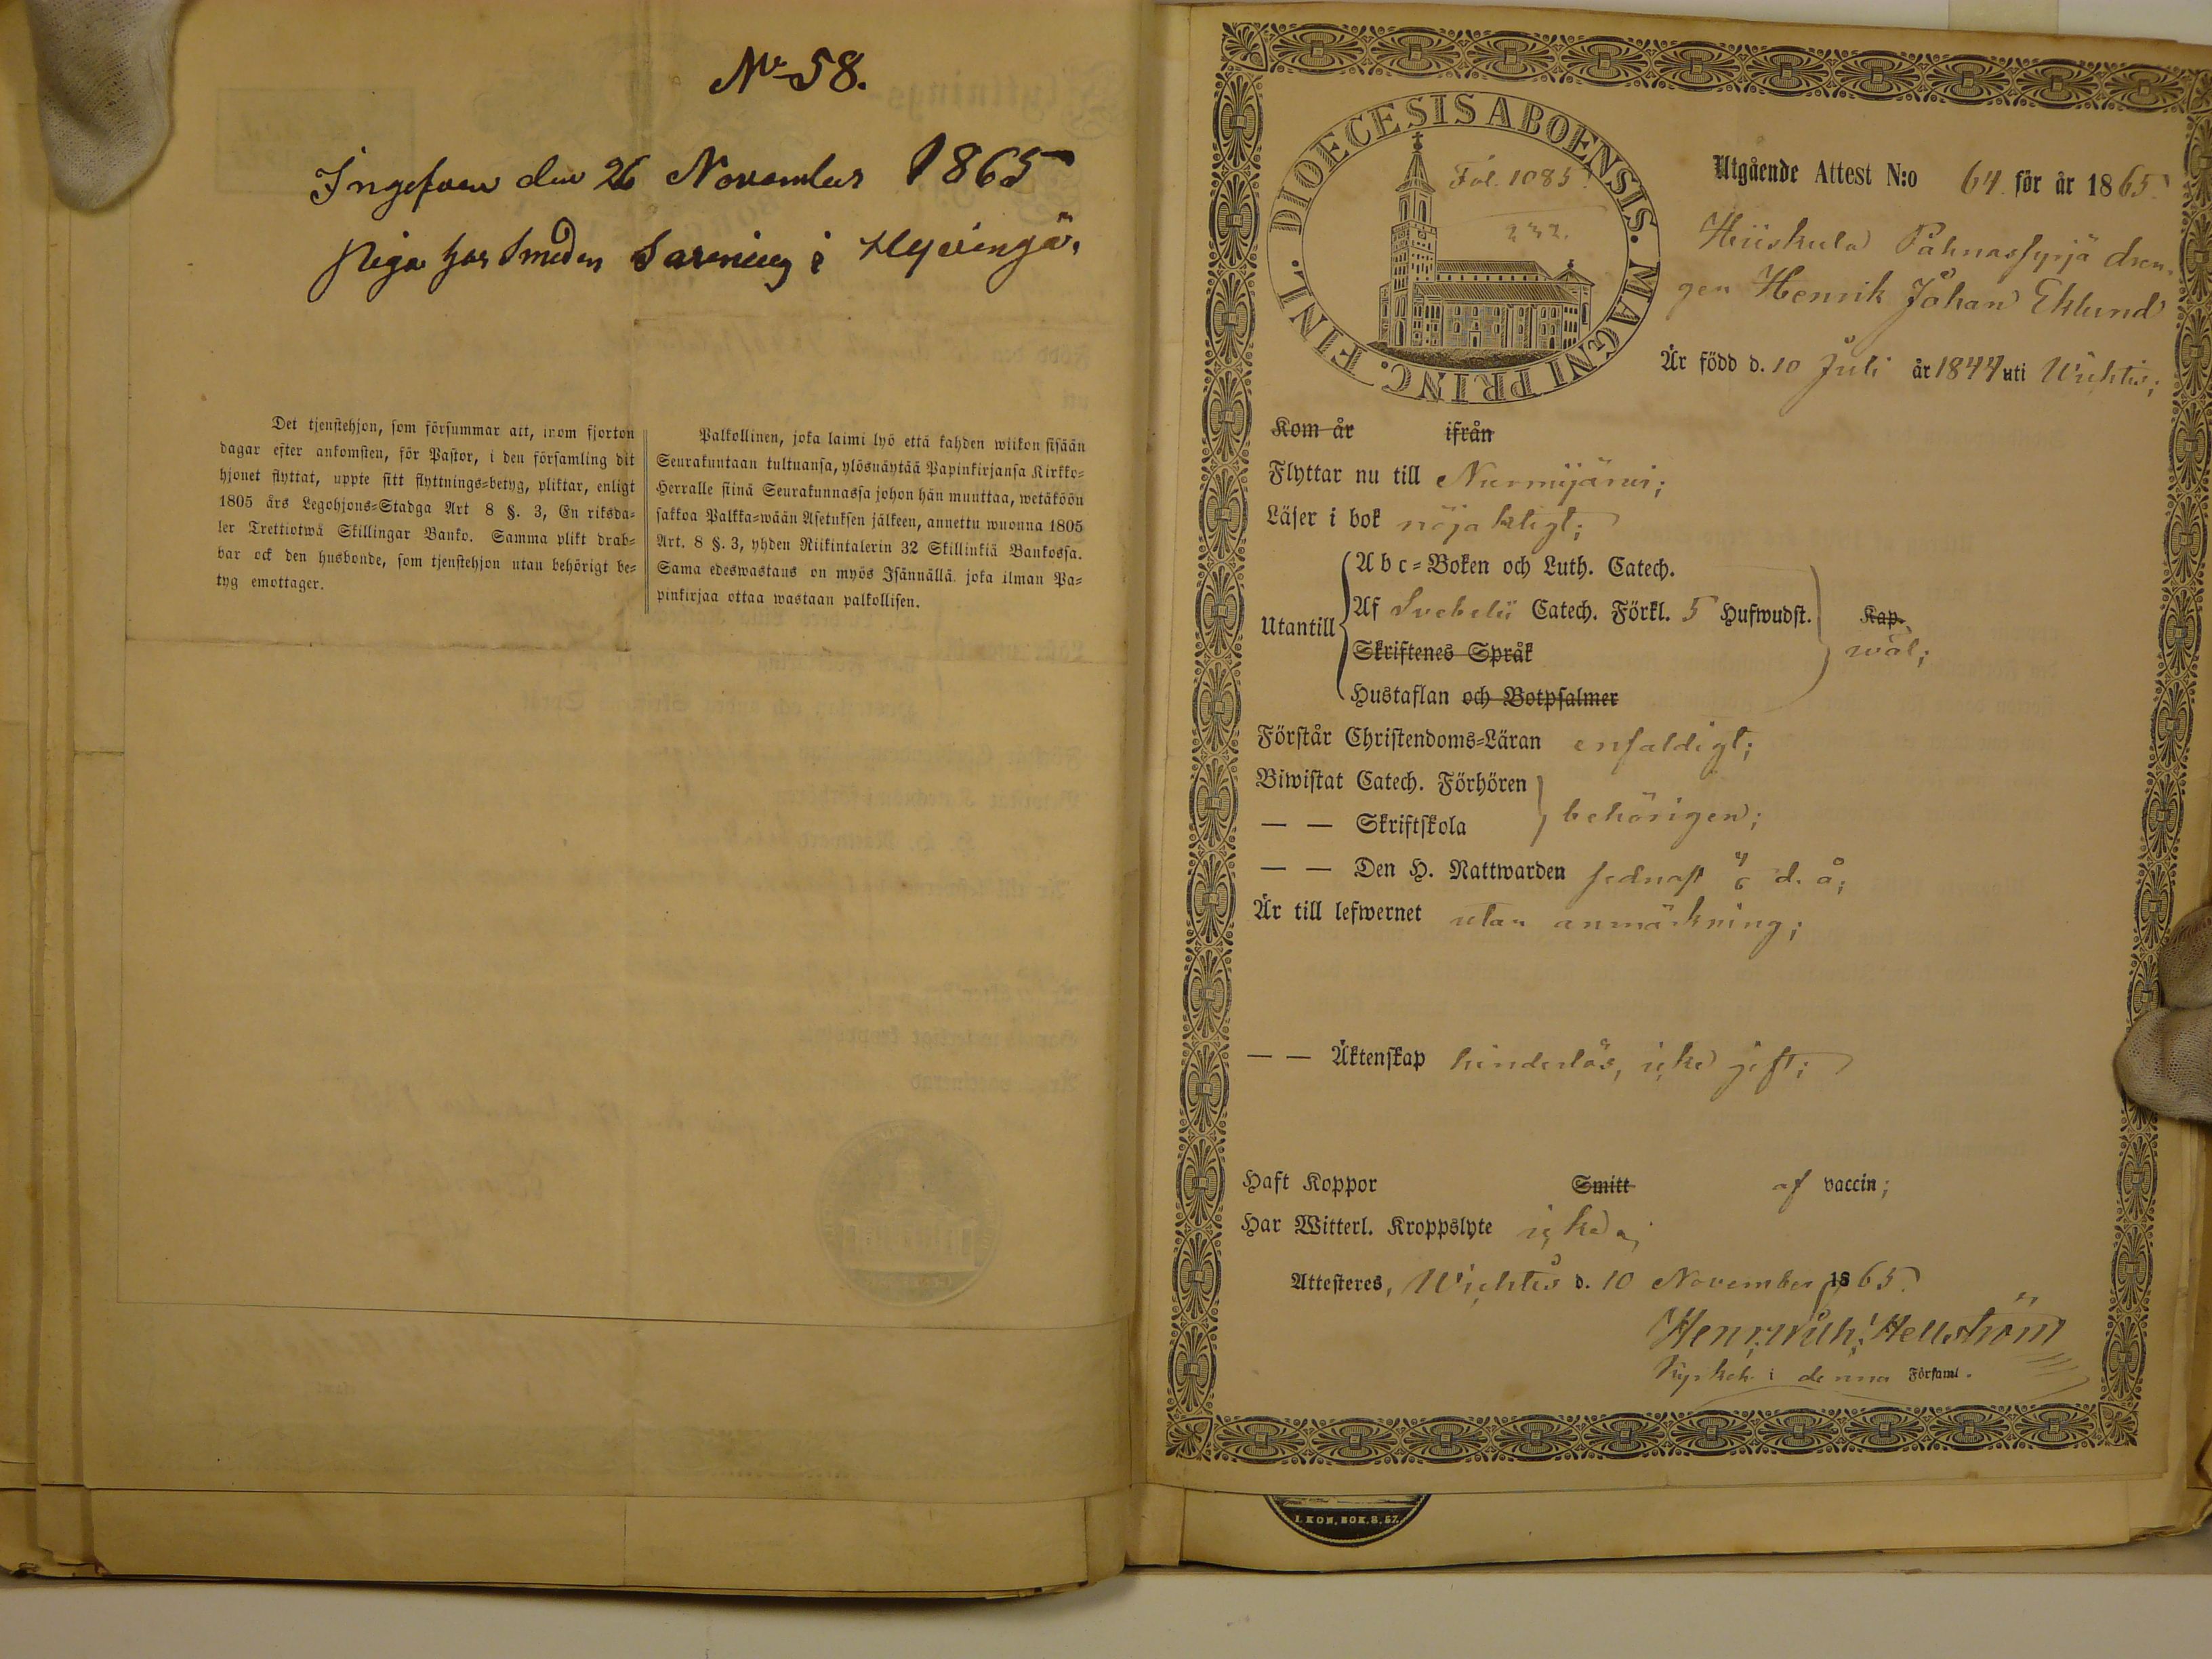 No 58.
Ingifven den 26 November 1865
piga hos Smeden i Hyvingä.
Det tjenstehjon, som försummar att, inom fjorton
dagar efter ankomsten, för Pastor, i den församling dit
hjonet flyttat, uppte sitt flyttnings=betyg, pliktar, enligt
1805 års Legohjons=Stadga Art 8 §. 3, En riksda=
ler Trettiotwå Skillingar Banko. Samma plikt drab=
bar ock den husbonde, som tjenstehjon utan behörigt be=
tyg emottager.
Palkollinen, joka laimi lyö että kahden wiikon sisään
Seurakuntaan tultuansa, ylösnäytää Papinkirjansa Kirkko=
Herralle siinä Seurakunnassa johon hän muuttaa, wetäköön
sakkoa Palkka=wään Asetuksen jälkeen, annettu wuonna 1805
Art. 8 §. 3, yhden Riikintalerin 32 Skillinkiä Bankossa.
Sama edeswastaus on myös Isännällä joka ilman Pa=
pinkirjaa ottaa wastaan palkollisen.
DIOECESIS ABOENSIS. MAGNI PRINC. FINL.
Fol. 1085.
232.
Utgående Attest N:o 64 för år 1865.
Hiiskula Pähnassyrjä dren-
gen Henrik Johan Eklund
Är född d. 10 Juli år 1844 uti Wichtis;
Kom år ifrån
Flyttar nu till Nurmijärvi;
Läser i bok nöjaktigt;
Utantill
Abc=Boken och Luth. Catech.
Af Svebelii Catech. Förkl. 5 Hufwudst.
Skriftenes Språk
Hustaflan och Botpsalmer
Kap.
wäl;
Förstår Christendoms=Läran enfaldigt;
Biwistat Catech. Förhören
— — Skriftskola
behörigen;
— — Den H. Nattwarden sednast 4/6 d. å;
Är till lefwernet utan anmärkning;
— — Äktenskap hinderlös, icke gift;
Haft Koppor Smitt af vaccin;
Har Witterl. Kroppslyte icke;
Attesteres, Wichtis d. 10 November 1865.
Henr. Wilh. Hellström
Kyrkoh. i denna Församl.
I. KON. BOK. 8, 57.